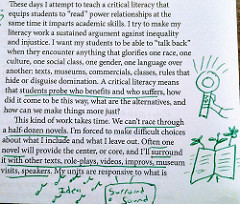 These days I attempt to teach a critical literacy that
equips students to "read" power relationships at the
same time it imparts academic skills. I try to make my
literacy work a sustained argument against inequality
and injustice. I want my students to be able to "talk back"
when they encounter anything that glorifies one race, one
culture, one social class, one gender, one language over
another: texts, museums, commercials, classes, rules that
hide or disguise domination. A critical literacy means
that students probe who benefits and who suffers, how
did it come to be this way, what are the alternatives, and
how can we make things more just?
This kind of work takes time. We can't race through
a half-dozen novels. I'm forced to make difficult choices
about what I include and what I leave out. Often one
novel will provide the center, or core, and I'll surround
it with other texts, role-plays, videos, improvs, museum
visits, speakers. My units are responsive to what is
Idea
Surround
Sound